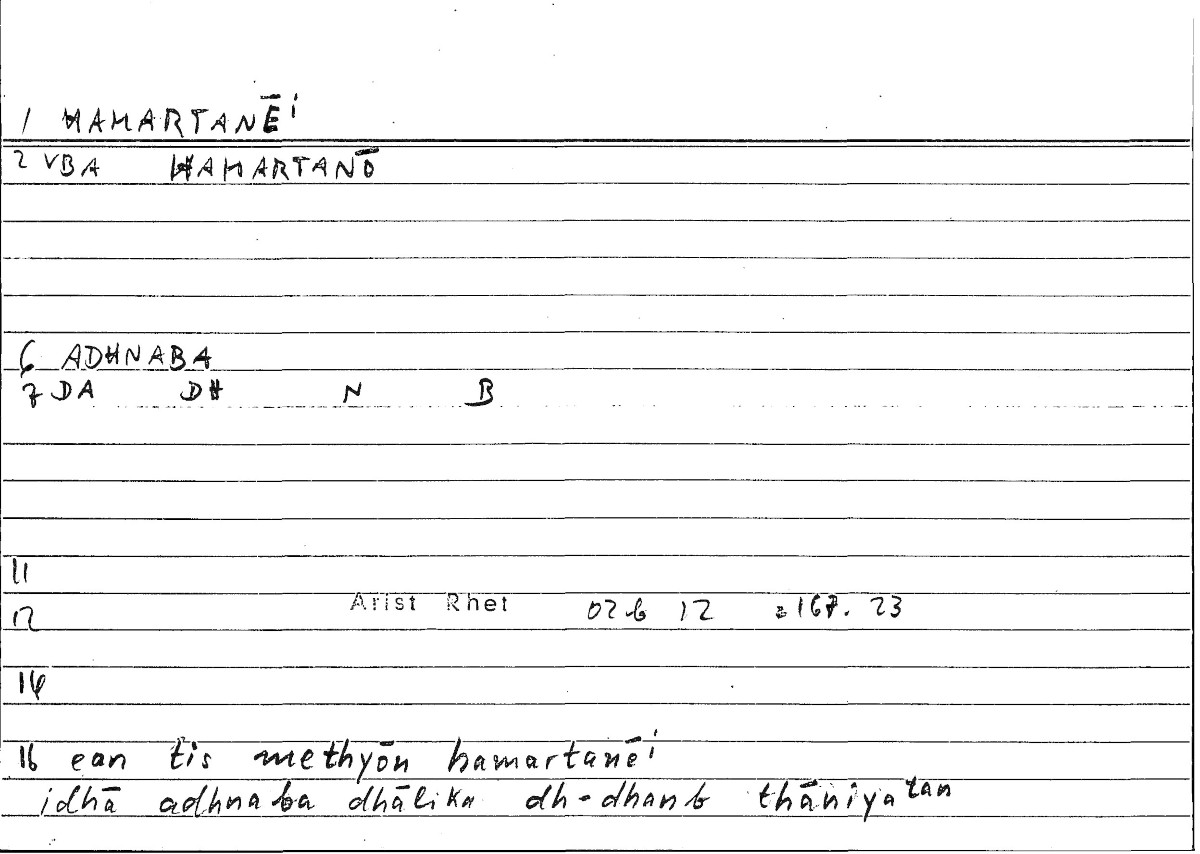 1 HAMARTANĒⁱ
2 VBA HAMARTANŌ
6 ADHNABA
7 DA DH N B
11
12 Arist Rhet 02b 12 = 167. 23
14
16 ean tis methyōn hamartanēⁱ
idhā adhnaba dhālika dh-dhanb thāniyatan